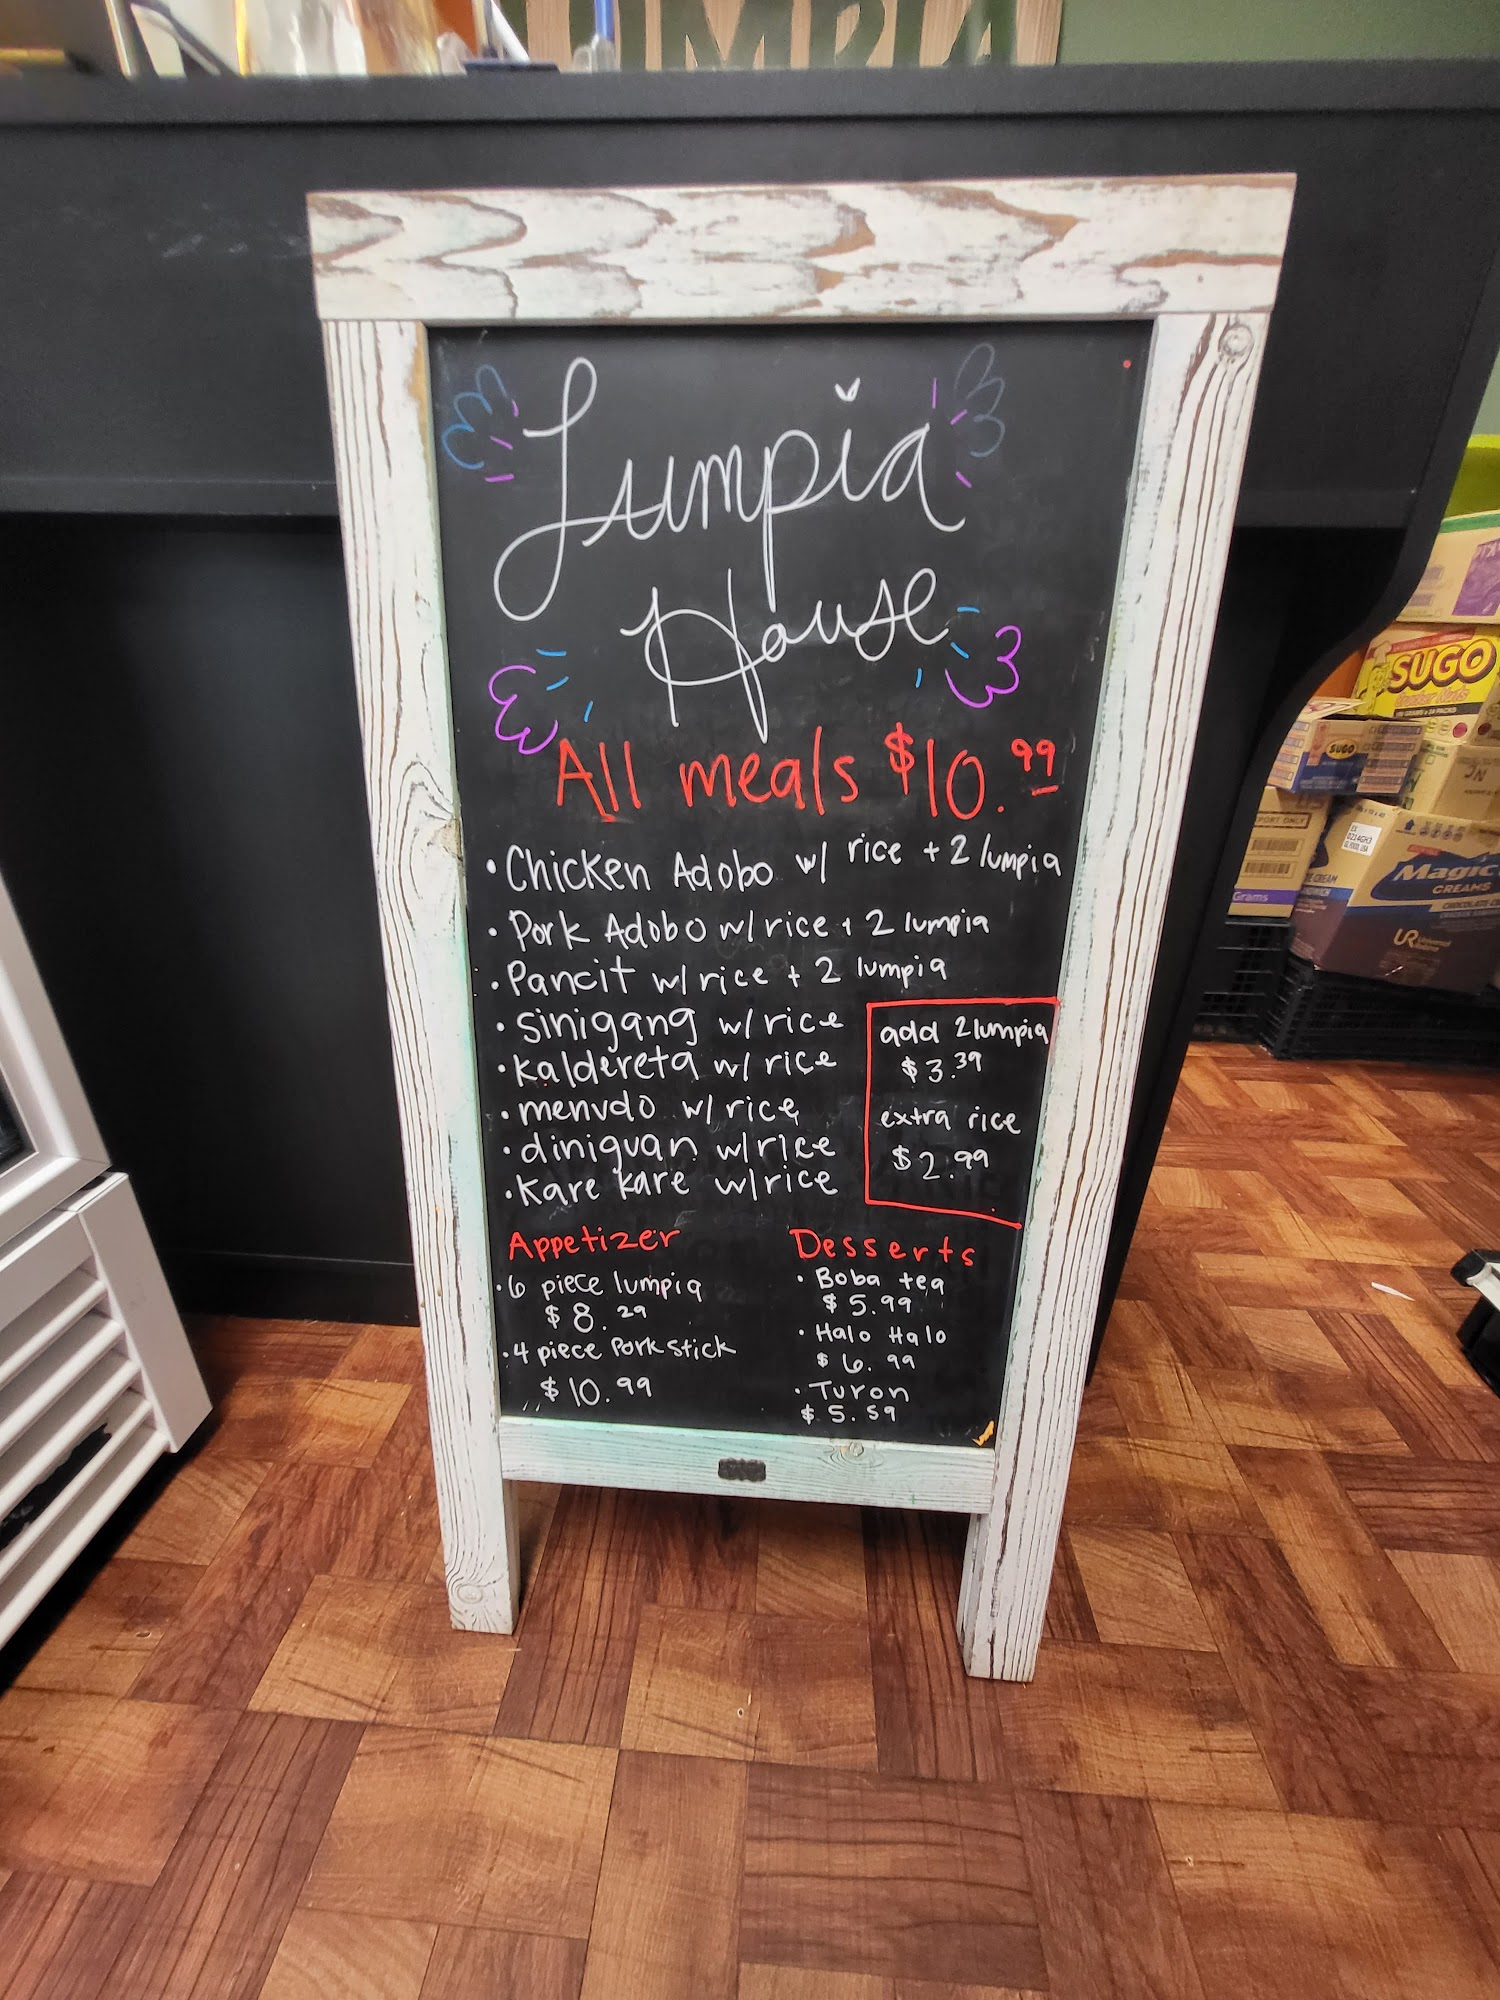 UMPIA
Lumpia
House
All meals $10.99
• Chicken Adobo w/ rice + 2 lumpia
• Pork Adobo w/ rice + 2 lumpia
• Pancit w/ rice + 2 lumpia
• sinigang w/ rice
• kaldereta w/ rice
• menudo w/ rice
• diniguan w/ rice
• Kare Kare w/ rice
add 2 lumpia
$3.39
extra rice
$2.99
Appetizer
• 6 piece lumpia
$8.29
• 4 piece Pork stick
$10.99
Desserts
• Boba tea
$5.99
• Halo Halo
$6.99
• Turon
$5.59
SUGO
SUGO
PORT ONLY
Grams
Magic
CREAMS